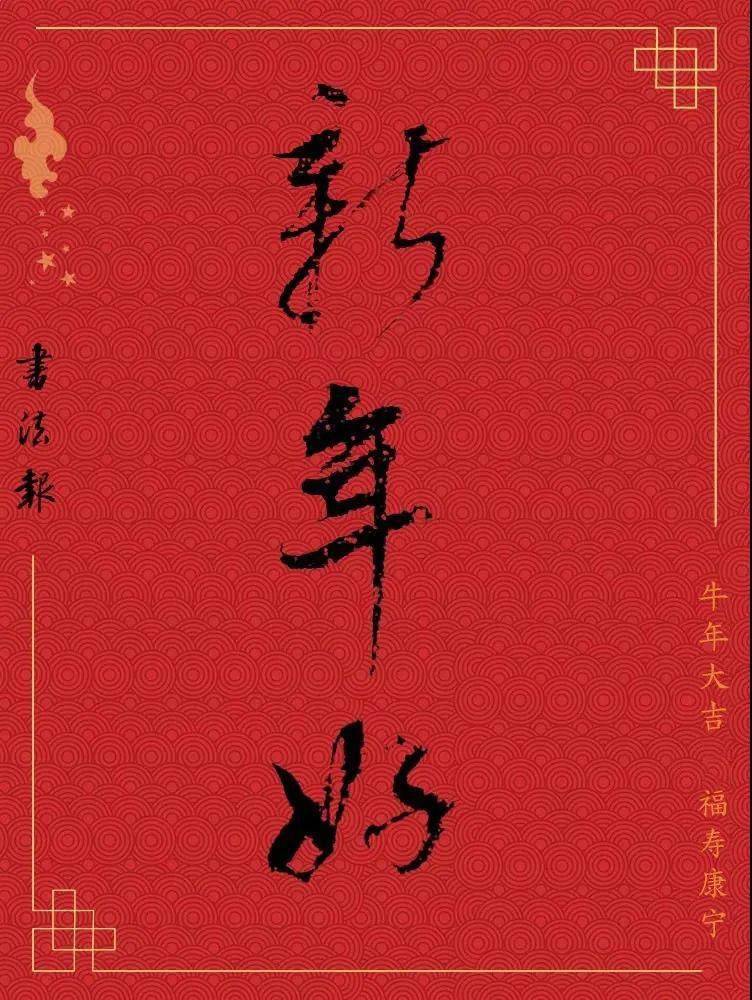 新年好
书法报
牛年大吉 福寿康宁